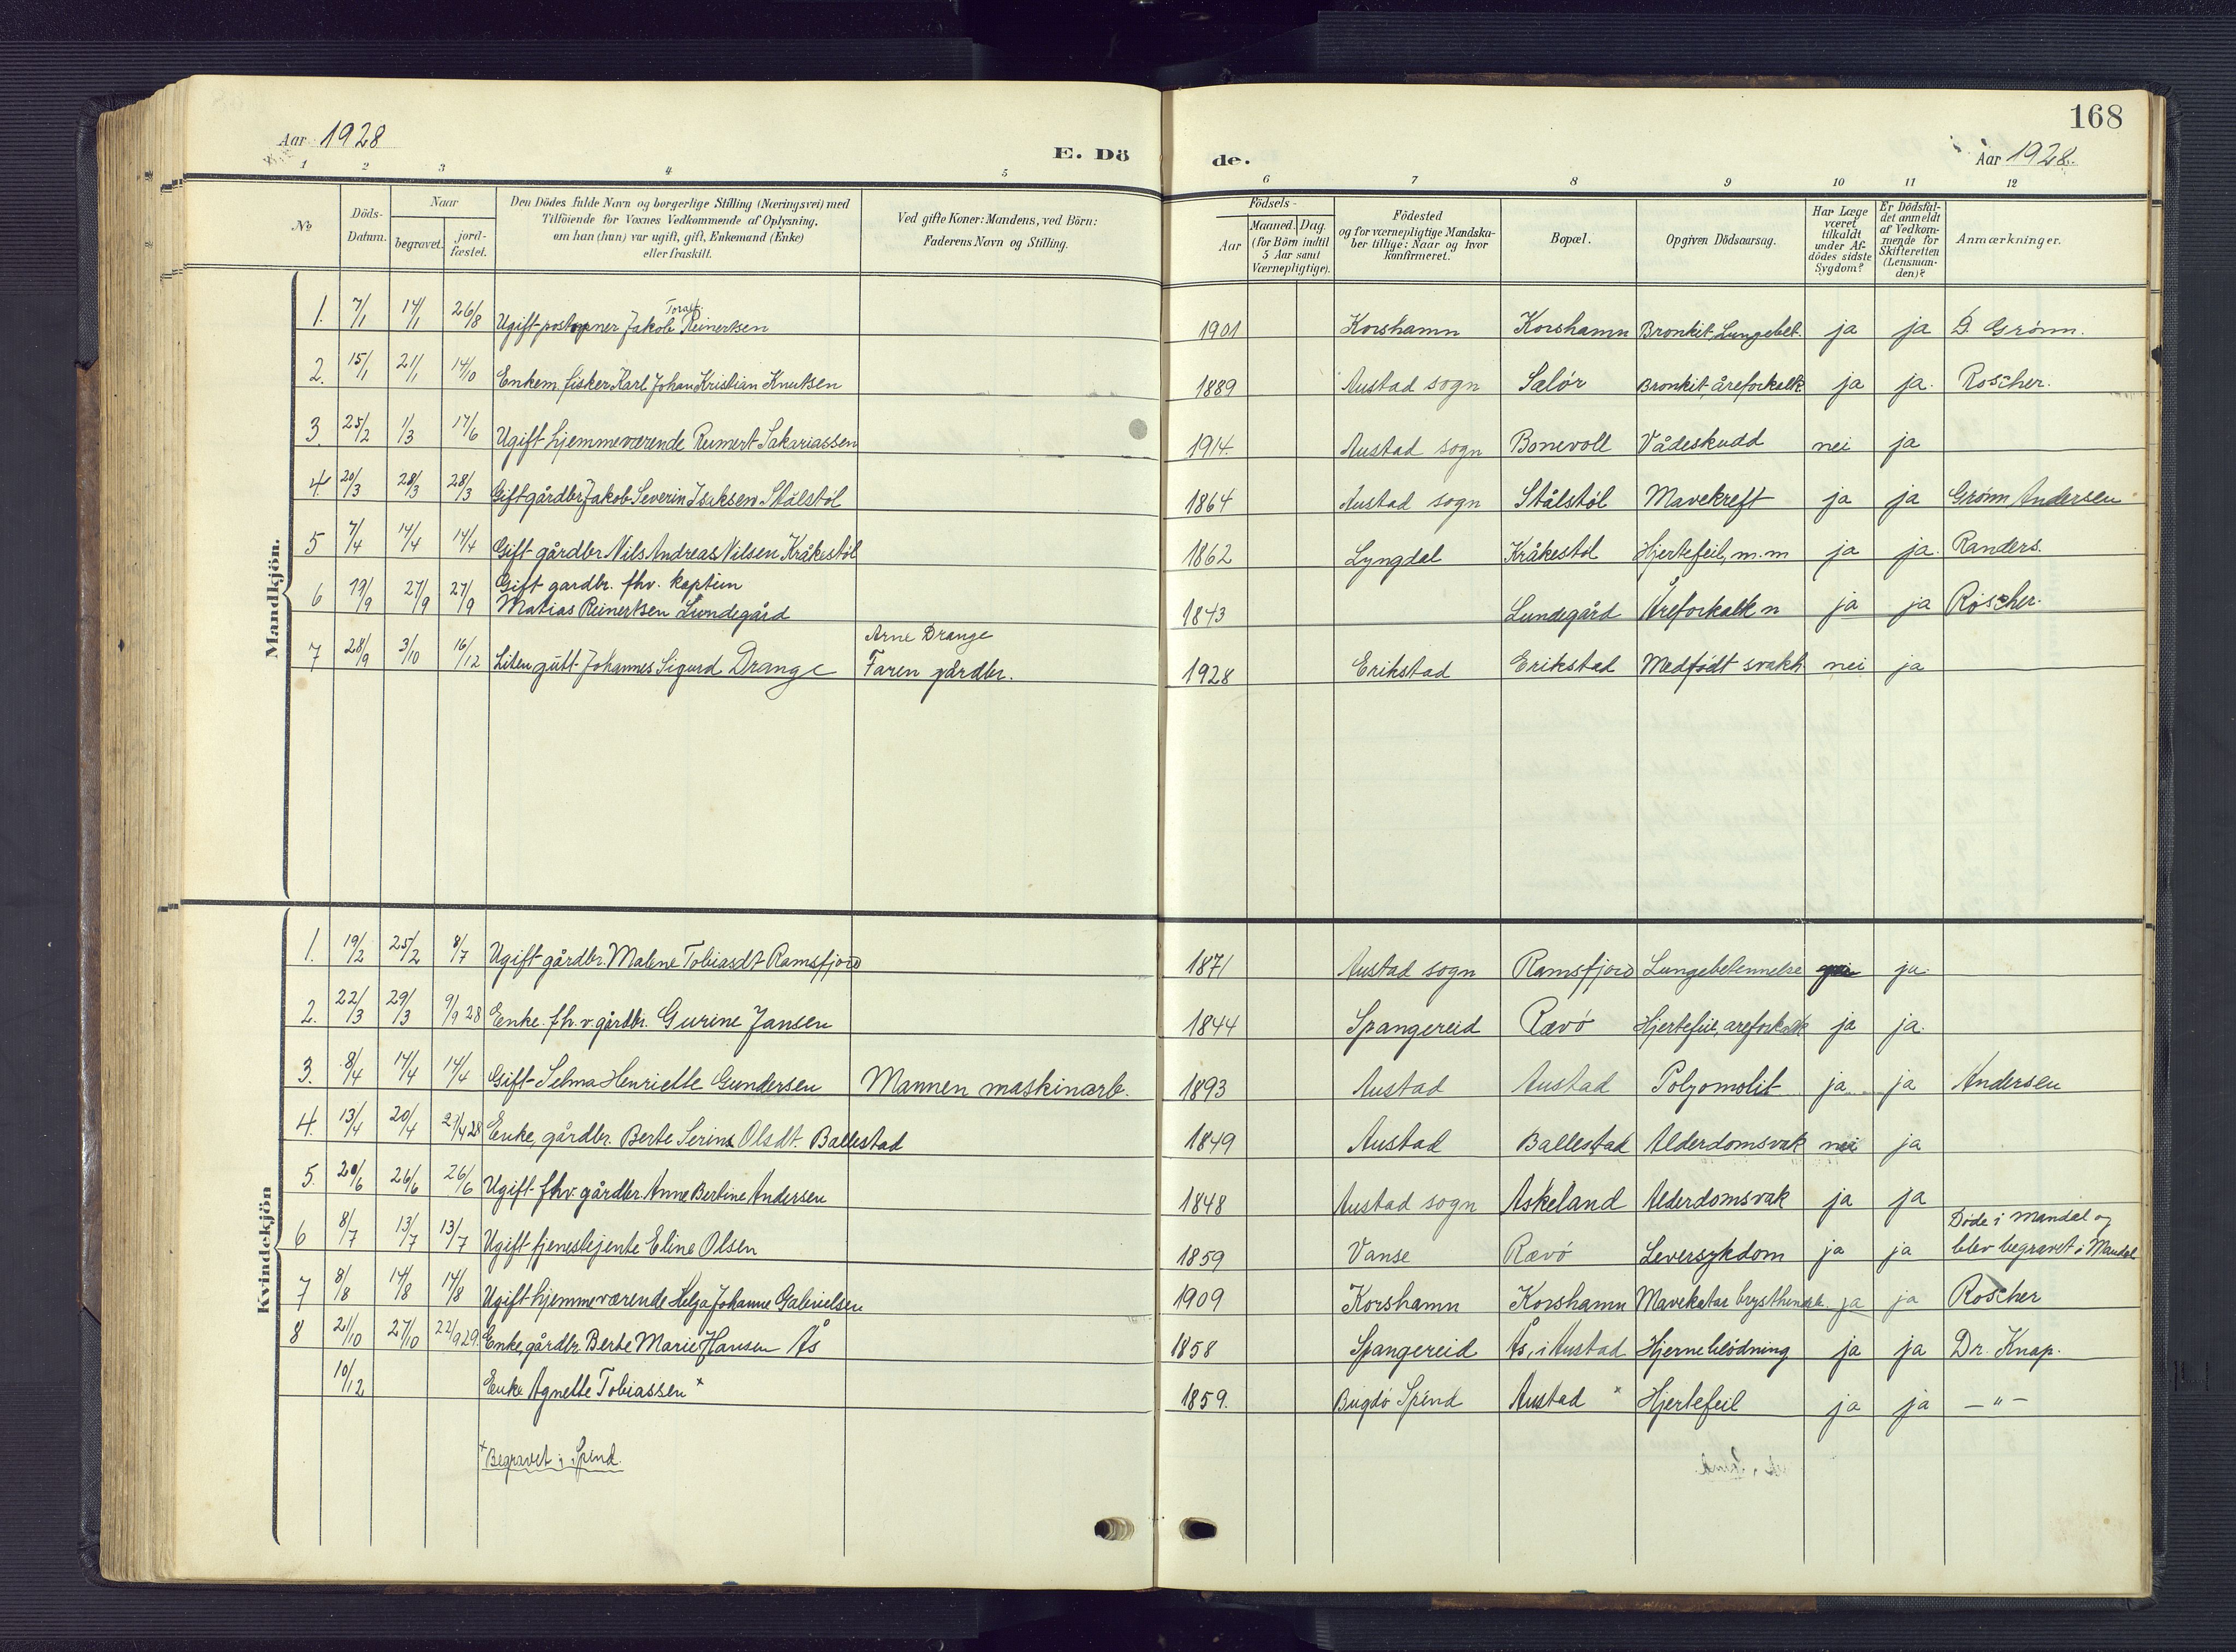 168
Aar 1928
E. Dö de.
Aar 1928.
1 2 3 4 5 6 7 8 9 10 11 12
No
Döds-Datum.
Naar
begravet.
jord-fæstet.
Den Dödes fulde Navn og borgerlige Stilling (Næringsvei) med
Tilföiende for Voxnes Vedkommende af Oplysning,
om han (hun) var ugift, gift, Enkemand (Enke)
eller fraskilt.
Ved gifte Koner: Mandens, ved Börn:
Faderens Navn og Stilling.
Födsels-
Aar
Maaned. Dag.
(for Börn indtil
5 Aar samt
Værnepligtige).
Födested
og for værnepligtige Mandska-
ber tillige: Naar og hvor
konfirmeret.
Bopæl.
Opgiven Dödsaarsag.
Har Læge
været
tilkaldt
under Af-
dödes sidste
Sygdom?
Er Dödsfal-
det anmeldt
af Vedkom-
mende for
Skifteretten
(Lensman-
den)?
Anmærkninger.
Mandkjön.
1. 7/1 14/1 26/8 Ugift postopner Jakob Toralf Reinertsen 1901 Korshamn Korshamn Bronkit, Lungebet. ja ja D. Grönn.
2. 15/1 21/1 14/10 Enkem. fisker Karl Johan Kristian Knutsen 1889 Austad sogn Selör Bronkit, åreforkalk. ja ja. Roscher.
3. 25/2 1/3 17/6 Ugift hjemmeværende Reinert Sakariassen 1914. Austad sogn Bonevoll Vådeskudd nei ja
4. 20/3 28/3 28/3 Gift gårdbr Jakob Severin Isaksen Stålstöl 1864 Austad sogn Stålstöl Mavekreft ja ja Grönn Andersen
5 7/4 14/4 14/4 Gift gårdbr Nils Andreas Nilsen Kråkestöl 1862 Lyngdal Kråkestöl Hjertefeil, m.m ja ja. Randers.
6 19/9 27/9 27/9 Gift gardbr. fhv. kaptein
Matias Reinertsen Lundegård 1843 Lundegård Åreforkalkn ja ja Roscher.
7 28/9 3/10 16/12 Liten gutt Johannes Sigurd Drange Arne Drange
Faren gårdbr. 1928 Erikstad Erikstad Medfödt svakh nei ja
Kvindekjön
1. 19/2 25/2 8/7 Ugift gårdbr. Malene Tobiasdt Ramsfjord 1871 Austad sogn Ramsfjord Lungebetennelse ja.
2. 22/3 29/3 9/9 28 Enke. fh.v. gårdbr. Gurine Jansen 1844 Spangereid Rævö Hjertefeil, areforkalk ja ja.
3. 8/4 14/4 14/4 Gift Selma Henriette Gundersen Mannen maskinarb. 1893 Austad Austad Polyomolit ja ja Andersen
4. 13/4 20/4 29/4 28 Enke, gårdbr. Berte Serine Olsdt. Ballestad 1849 Austad Ballestad Alderdomsvak nei ja
5. 20/6 26/6 26/6 Ugift fhv gårdbr. Anne Bertine Andersen 1848 Austad sogn Askeland Alderdomsvak ja ja
6 8/7 13/7 13/7 Ugift tjenestejente Eline Olsen 1859 Vanse Rævö Leversykdom ja ja Döde i Mandal og
blev begravet i Mandal
7 8/8 14/8 14/8 Ugift hjemmeværende Helga Johanne Gabrielsen 1909 Korshamn Korshamn Mavekatar brysthindeb. ja ja Roscher
8 21/10 27/10 22/9 29. Enke, gårdbr Berte Marie Hansen Ås 1858 Spangereid Ås, i Austad Hjerneblödning ja ja Dr. Knap.
10/12 Enke Agnette Tobiassen x 1859. Bugdö Spind Austad x Hjertefeil ja ja — " —
x Begravet i Spind.